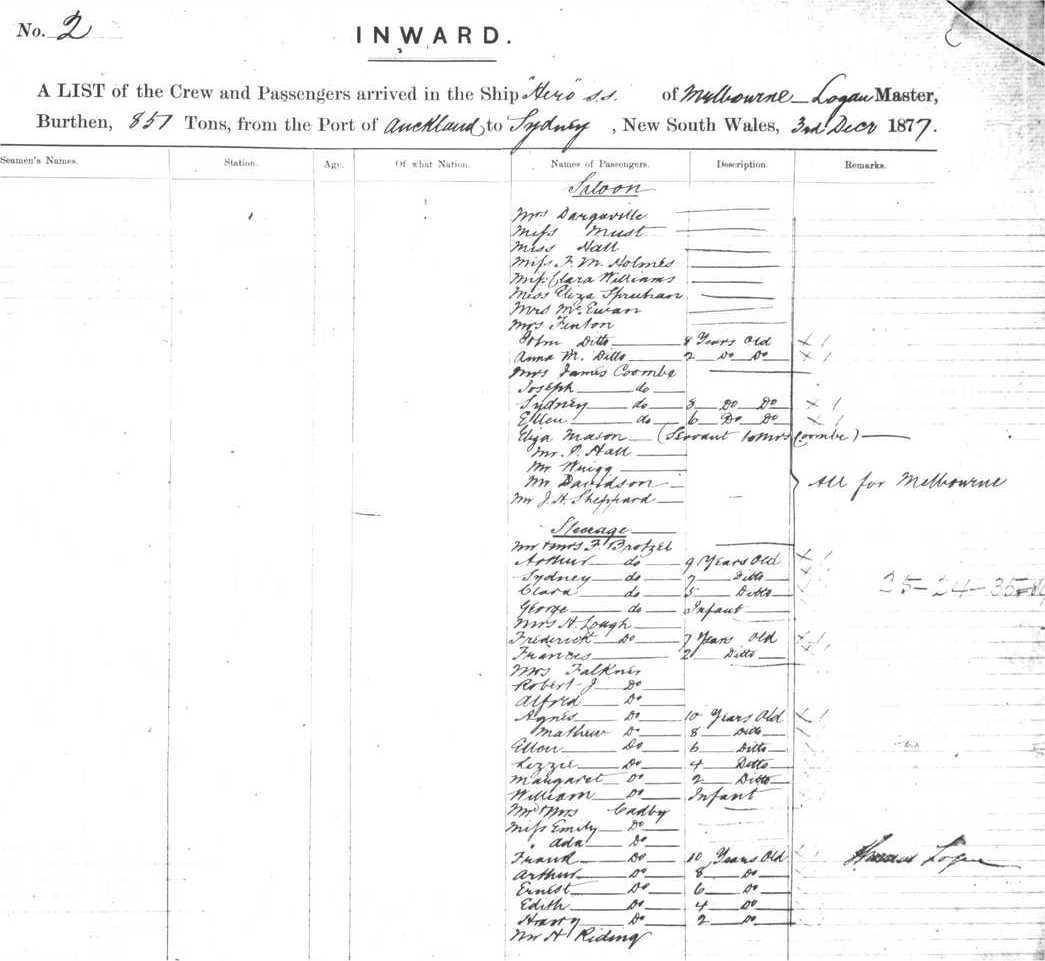 No. 2
INWARD.
A LIST of the Crew and Passengers arrived in the Ship "Hero" s.s. of Melbourne - Logan Master,
Burthen, 851 Tons, from the Port of Auckland to Sydney, New South Wales, 3rd Decr 1877.
Seamen's Names. Station. Age. Of what Nation. Names of Passengers. Description. Remarks.
Saloon
Mrs Dargaville
Miss Must
Miss Hall
Miss F. M. Holmes
Miss Clara Williams
Miss Eliza
Mrs McEwan
Mrs Fenton
John Ditto 8 Years Old X /
Anna M. Ditto 2 Do Do X /
Mrs James Coombe
Joseph do
Sydney do 8 Do Do X /
Ellen do 6 Do Do X /
Eliza Mason (Servant to Mrs Coombe)
Mr P. Hall
Mr Wrigg
Mr Davidson All for Melbourne
Mr J. H. Sheppard
Steerage
Mr & Mrs F Brotzel
Arthur do 9 Years Old X /
Sydney do 7 Ditto X
Clara do 5 Ditto
George do Infant
25-24-35
Mrs H. Lough
Frederick Do 7 Years Old X /
Francis 2 Ditto X
Mrs Falkner
Robert J Do
Alfred Do
Agnes Do 10 Years Old X /
Mathew Do 8 Ditto
Ellen Do 6 Ditto
Lizzie Do 4 Ditto
Margaret Do 2 Ditto
William Do Infant
Mr & Mrs Cadby
Miss Emily Do
" Ada Do
Frank Do 10 Years Old
Logan
Arthur Do 8 Do
Ernest Do 6 Do
Edith Do 4 Do
Harry Do 2 Do
Mr H Riding